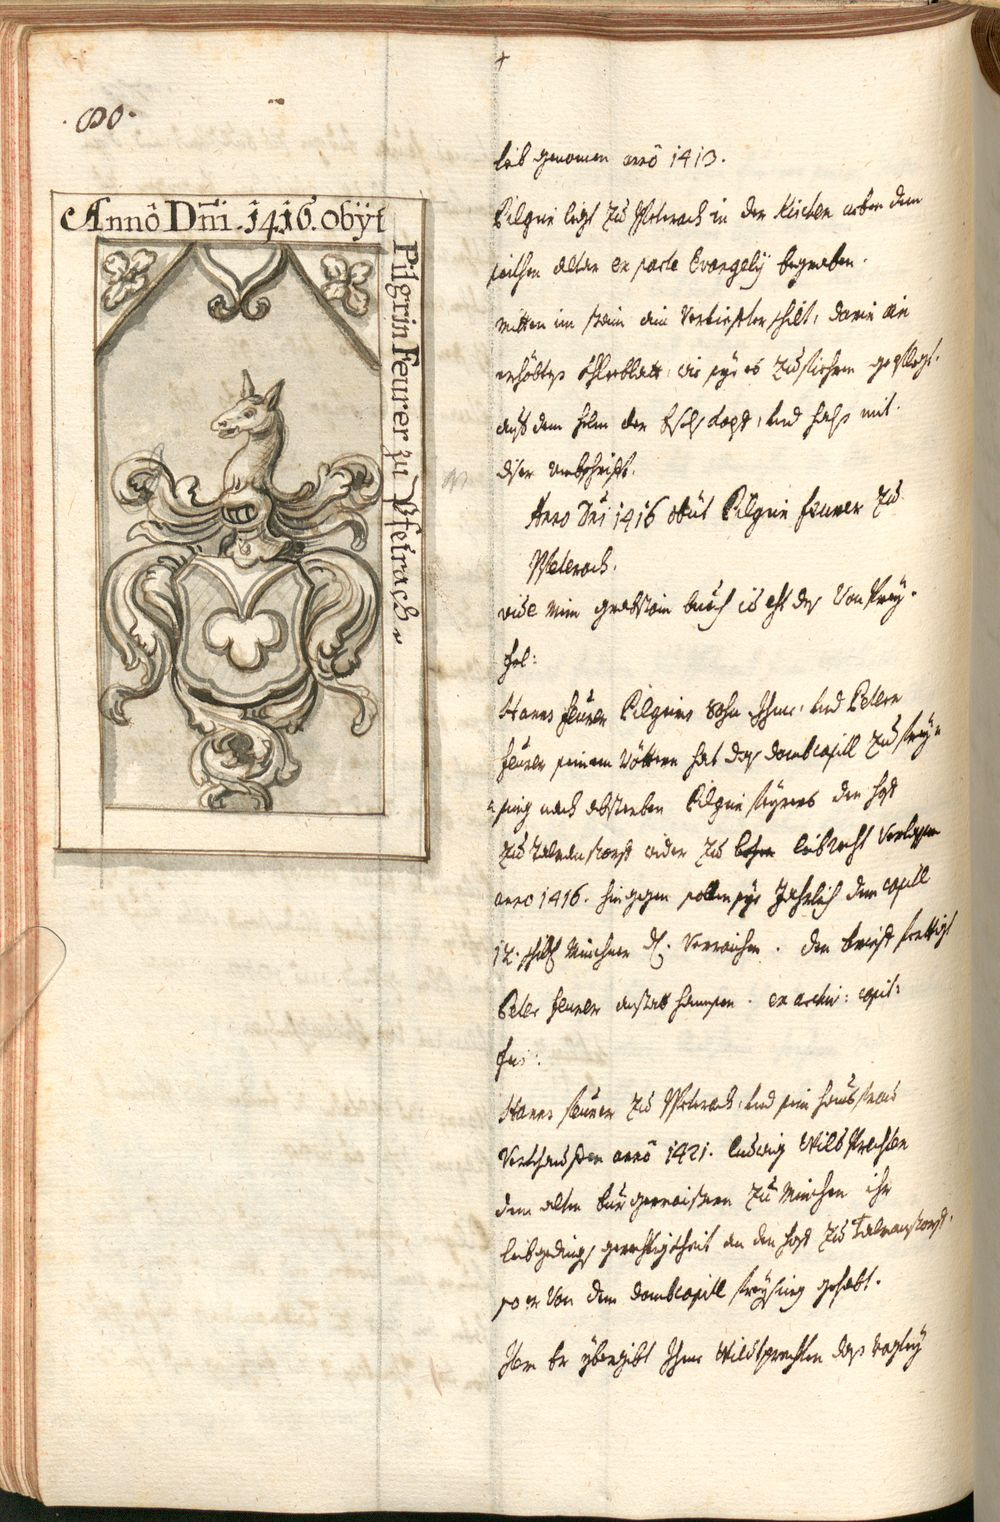 80.
Annô Dñi. 1416. obÿt
Pilgrin Feurer zu Pfetrach
leib genomen anno 1413.
Pilgrin ligt zu Pfeterach in der Kirchen neben dem
seithen altar ex parte Evangelÿ begraben.
mitten im stain ain Vertieffter schilt, darin ain
erhöbtes khleeblatt, wie sye es zu fiehren gepflegt.
auf dem helm der Esels kopf, und hals mit
diser umbschrifft.
Anno Dñi 1416 obiit Pilgrin feurer zu
Pfeterach.
vide mein grabstain buech
fol:
Hanns feurer Pilgrins Sohn, und Petern
feurer seinem Vöttern hat das dombcapitl zu freÿ-
sing nach absterben Pilgrin den hof
zu wider zu leibrecht Verlassen
anno 1416. hingegen sollen sye Jehrlich dem capitl
12. schilling Minchner dl. Verraichen. den brieff fertigt
Peter feurer anstatt hannsen. ex archiv: capit:
fris:
Hanns feurer zu Pfeterach, und sein hausfrau
Verkhauffen anno 1421. ludwig Wilbrechten
dem alten burgermaistern zu Minchen ihr
leibgedings gerechtigkheit an den hof zu
so er Von dem dombcapitl freÿsing gehabt.
Item Er ybergibt Ihme Wildtprechten das vogteÿ